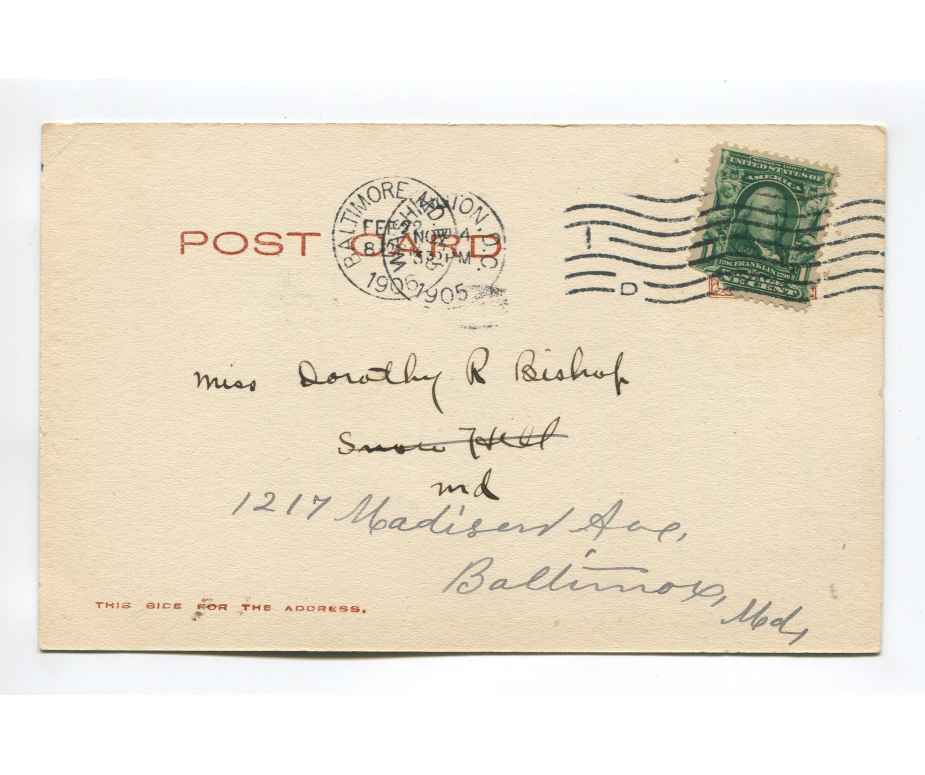 BALTIMORE, MD.
FEB 22
8
1906
WASHINGTON, D.C.
NOV 4
3 PM
1905
D
UNITED STATES OF
AMERICA
FRANKLIN
POSTAGE
ONE CENT
POST CARD
Miss Dorothy R Bishop
Snow Hill
Md
1217 Madison Ave,
Baltimore,
Md,
THIS SIDE FOR THE ADDRESS.